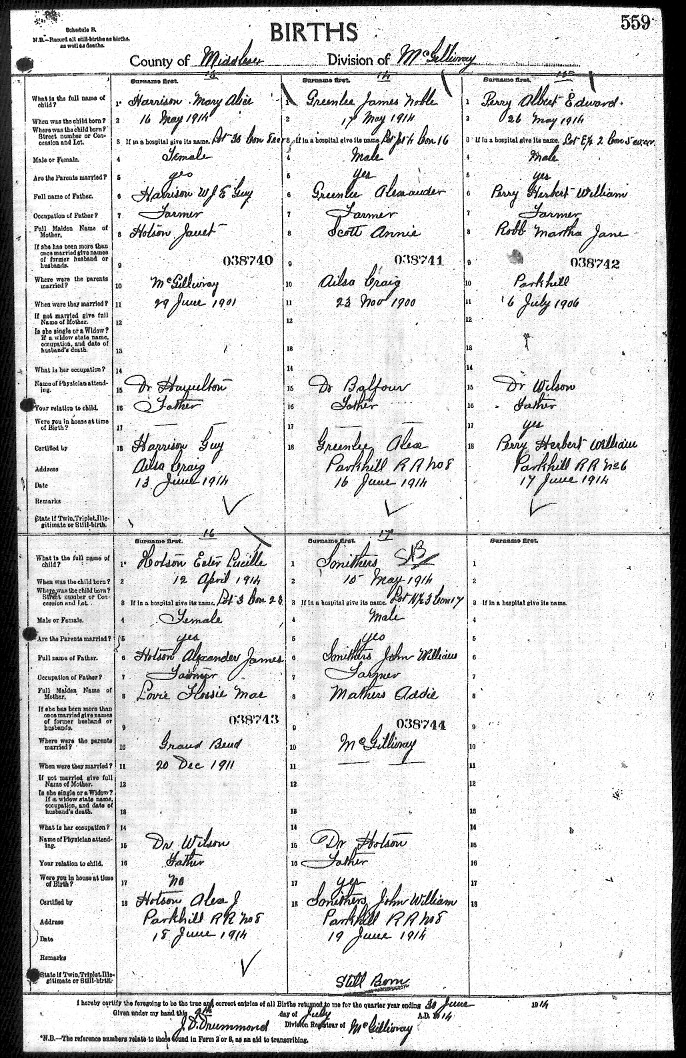 Schedule B.
N.B.—Record all still-births as births, as well as deaths.
BIRTHS
559
County of Middlesex Division of McGillivray
13
14
15
Surname first.
Surname first.
Surname first.
What is the full name of child?
1 Harrison Mary Alice
1 Greenlee James Noble
1 Perry Albert Edward
When was the child born?
2 16 May 1914
2 17 May 1914
2 26 May 1914
Where was the child born? Street number or Concession and Lot.
3 If in a hospital give its name. Lot 30 Con 8
3 If in a hospital give its name. Con 16
3 If in a hospital give its name. Lot E½ 2 Con 5
Male or Female.
4 Female
4 Male
4 Male
Are the Parents married?
5 yes
5 yes
5 yes
Full name of Father.
6 Harrison W J E Guy
6 Greenlee Alexander
6 Perry Herbert William
Occupation of Father?
7 Farmer
7 Farmer
7 Farmer
Full Maiden Name of Mother.
8 Hotson Janet
8 Scott Annie
8 Robb Martha Jane
If she has been more than once married give names of former husband or husbands.
9 038740
9 038741
9 038742
Where were the parents married?
10 McGillivray
10 Ailsa Craig
10 Parkhill
When were they married?
11 29 June 1901
11 23 Nov 1900
11 6 July 1906
If not married give full Name of Mother.
12
12
12
Is she single or a Widow? If a widow state name, occupation, and date of husband's death.
13
13
13
What is her occupation?
14
14
14
Name of Physician attending.
15 Dr
15 Dr Balfour
15 Dr Wilson
Your relation to child.
16 Father
16 Father
16 Father
Were you in house at time of Birth?
17 —
17 —
17 yes
Certified by
18 Harrison Guy
18 Greenlee Alex
18 Perry Herbert William
Address
Ailsa Craig
Parkhill R R No 8
Parkhill R R No 6
Date
13 June 1914
16 June 1914
17 June 1914
Remarks
State if Twin, Triplet, Illegitimate or Still-birth.
16
17
Surname first.
Surname first.
Surname first.
What is the full name of child?
1 Hotson Ester Lucille
1 Smithers SB
1
When was the child born?
2 12 April 1914
2 15 May 1914
2
Where was the child born? Street number or Concession and Lot.
3 If in a hospital give its name. Lot 3 Con 23
3 If in a hospital give its name. Lot N½ 3 Con 17
3 If in a hospital give its name.
Male or Female.
4 Female
4 Male
4
Are the Parents married?
5 yes
5 yes
5
Full name of Father.
6 Hotson Alexander James
6 Smithers John William
6
Occupation of Father?
7 Farmer
7 Farmer
7
Full Maiden Name of Mother.
8 Lovie Flossie Mae
8 Mathers Addie
8
If she has been more than once married give names of former husband or husbands.
9 038743
9 038744
9
Where were the parents married?
10 Grand Bend
10 McGillivray
10
When were they married?
11 20 Dec 1911
11 —
11
If not married give full Name of Mother.
12
12
12
Is she single or a Widow? If a widow state name, occupation, and date of husband's death.
13
13
13
What is her occupation?
14
14
14
Name of Physician attending.
15 Dr Wilson
15 Dr Hotson
15
Your relation to child.
16 Father
16 Father
16
Were you in house at time of Birth?
17 no
17 yes
17
Certified by
18 Hotson Alex J
18 Smithers John William
18
Address
Parkhill R R No 8
Parkhill R R No 8
Date
18 June 1914
19 June 1914
Remarks
State if Twin, Triplet, Illegitimate or Still-birth.
Still Born
I hereby certify the foregoing to be the true and correct entries of all Births returned to me for the quarter year ending 30 June 1914
Given under my hand this 9th day of July A.D. 1914
J. D. Drummond Division Registrar of McGillivray
*N.B.—The reference numbers relate to those found in Form 2 or 3, as an aid to transcribing.